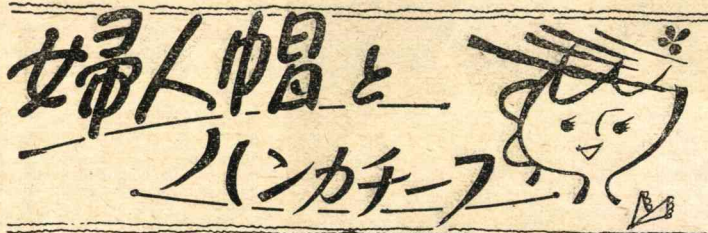 婦人帽と
ハンカチーフ